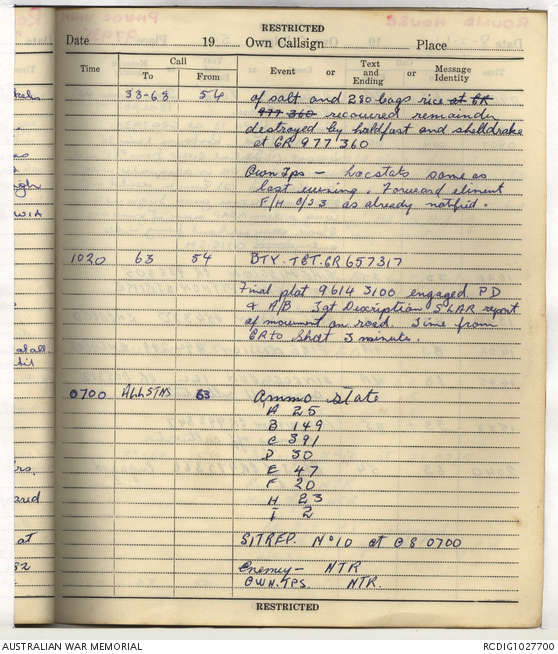 RESTRICTED
Date 19 Own Callsign Place
Time Call To From Event or Text and Ending or Message Identity
33-68 54 of salt and 280 bags rice at GR
977 360 recovered remainder
destroyed by holdfast and shelldrake
at GR 977 360
Own Tps - Locstats same as
last evening. Forward eliment
F/H C/S 3 as already notified.
1020 63 54 BTY. TGT. GR 657317
Final plot 9614 3100 engaged PD
& A/B Tgt Description SLAR report
of movement on road. Time from
GR to Shot 3 minutes.
0700 ALL STNS 63 Ammo state
A 25
B 149
C 391
D 30
E 47
F 20
H 23
I 2
SITREP. No 10 at 08 0700
Enemey - NTR
OWN.TPS. NTR.
RESTRICTED
AUSTRALIAN WAR MEMORIAL RCDIG1027700